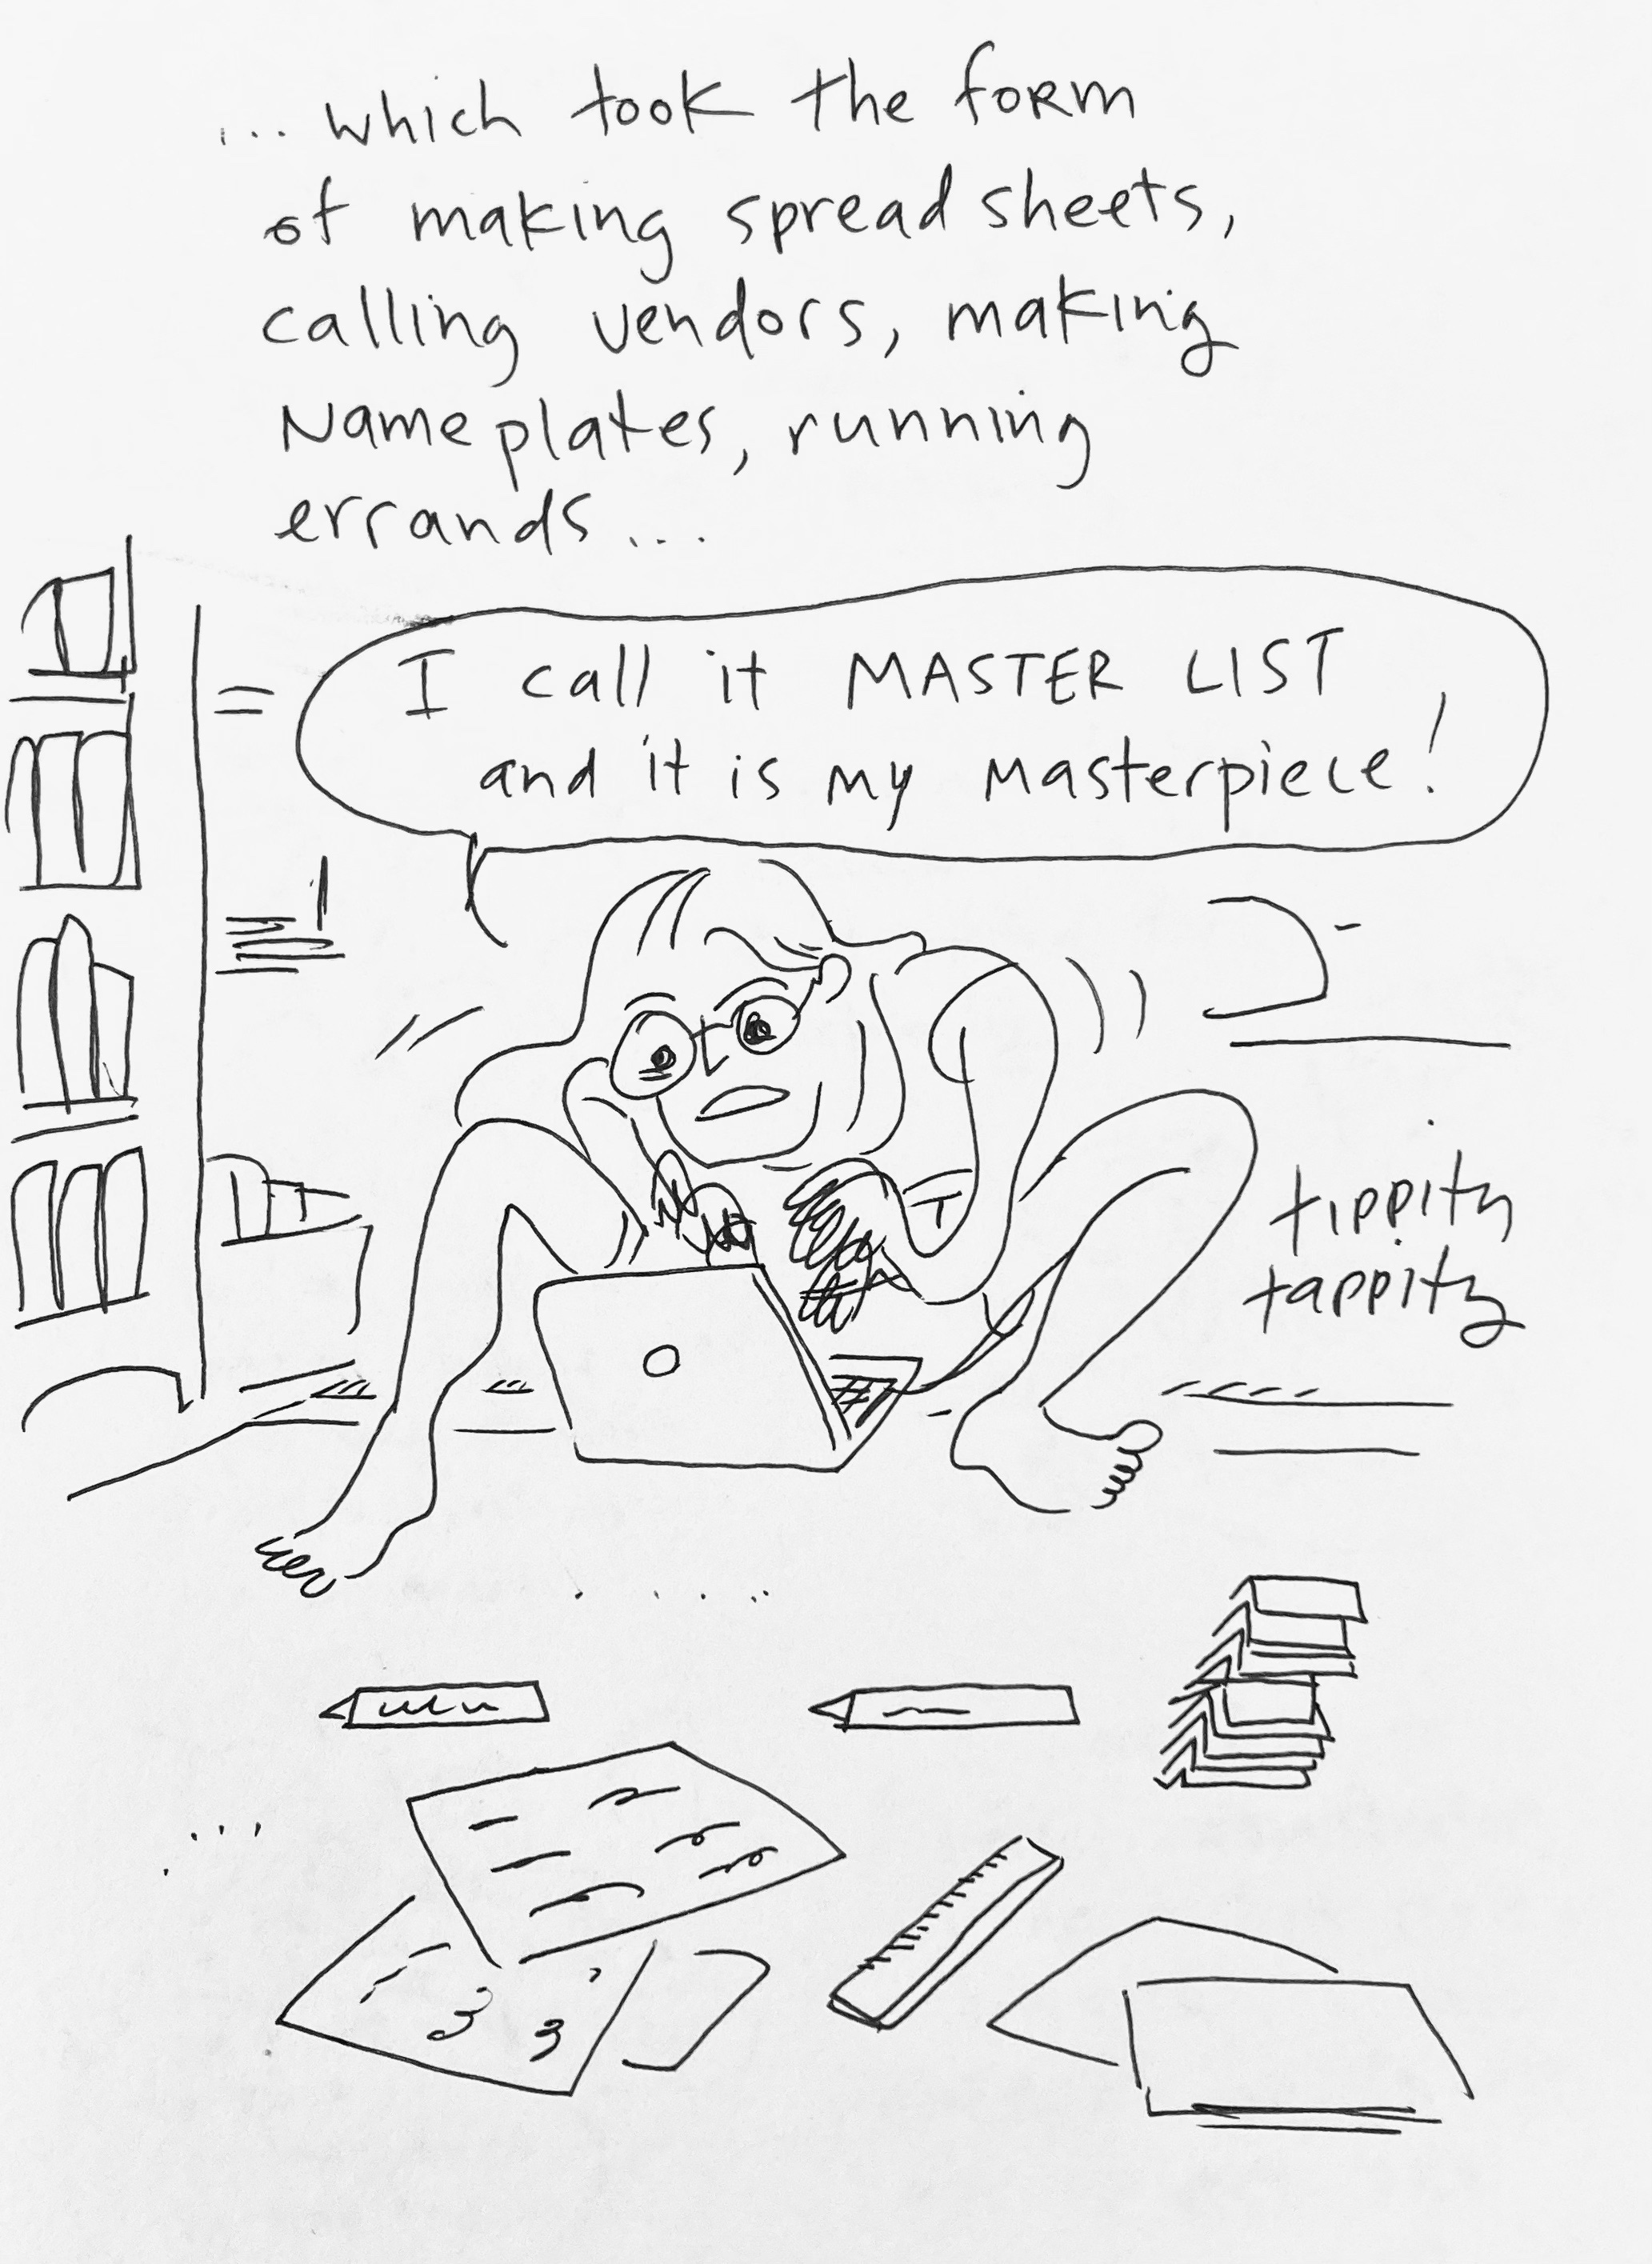 ... which took the form
of making spread sheets,
calling vendors, making
Name plates, running
errands...
I call it MASTER LIST
and it is my Masterpiece!
tippity
tappity
3 3